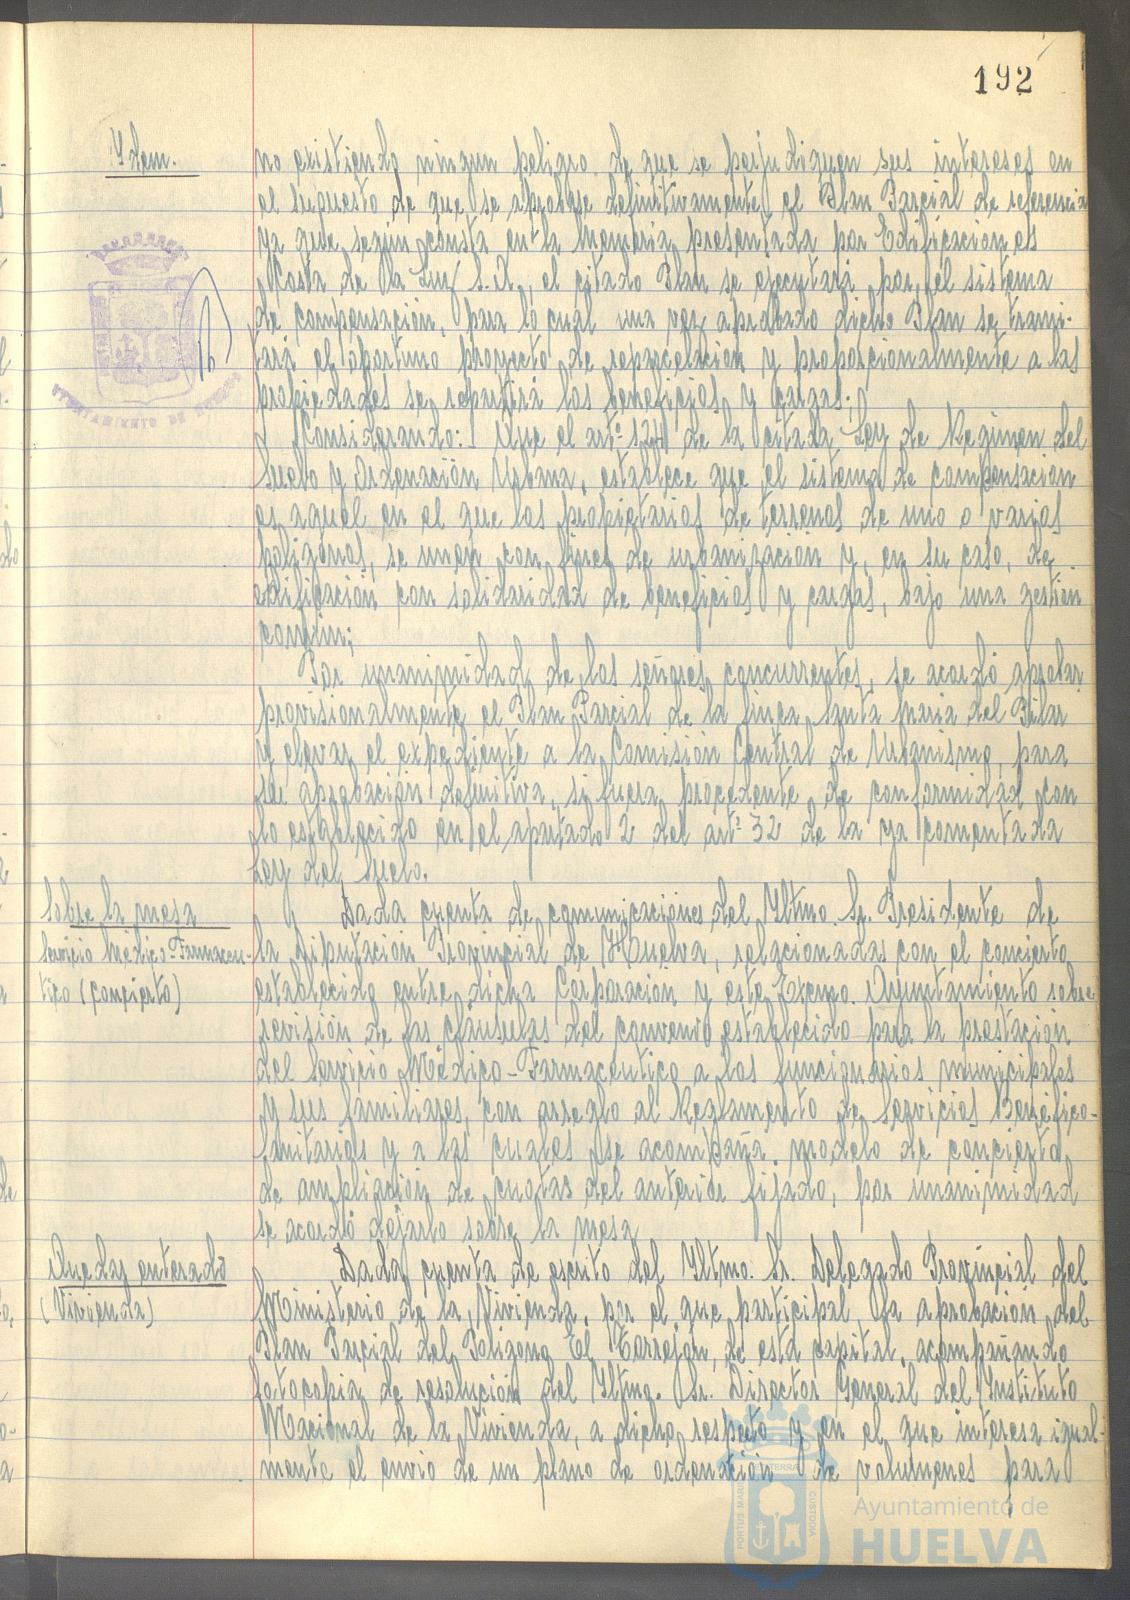 192
Idem.
no existiendo ningun peligro de que se perjudiquen sus intereses en
el supuesto de que se aprobase definitivamente el Plan Parcial de referencia
ya que, según consta en la Memoria presentada por Edificaciones
Costa de la Luz S.A., el citado Plan se ejecutará por el sistema
de compensación, para lo cual una vez aprobado dicho Plan se trami-
tará el oportuno proyecto de reparcelación y proporcionalmente a las
propiedades se repartirá los beneficios y cargas;
Considerando: Que el artº 124 de la citada Ley de Regimen del
Suelo y Ordenación Urbana, establece que el sistema de compensacion
es aquel en el que los propietarios de terrenos de uno o varios
poligonos, se unen con fines de urbanización y, en su caso, de
edificación con solidaridad de beneficios y cargas, bajo una gestión
común;
Por unanimidad de los señores concurrentes, se acordó aprobar
provisionalmente el Plan Parcial de la finca Santa Maria del Pilar
y elevar el expediente a la Comisión Central de Urbanismo, para
su aprobación definitiva, si fuera procedente, de conformidad con
lo establecido en el apartado 2 del artº 32 de la ya comentada
Ley del Suelo.
Sobre la mesa
Servicio Médico-Farmaceu-
tico (concierto)
Dada cuenta de comunicaciones del Iltmo. Sr. Presidente de
la Diputación Provincial de Huelva, relacionadas con el concierto
establecido entre dicha Corporación y este Excmo. Ayuntamiento sobre
revisión de las cláusulas del convenio establecido para la prestación
del Servicio Médico-Farmacéutico a los funcionarios municipales
y sus familiares, con arreglo al Reglamento de Servicios Benéfico-
Sanitarios y a las cuales se acompaña modelo de concierto
de ampliación de cuotas del anterior fijado, por unanimidad
se acordó dejarlo sobre la mesa
Quedar enterado
(Vivienda)
Dada cuenta de escrito del Iltmo. Sr. Delegado Provincial del
Ministerio de la Vivienda, por el que participa la aprobación del
Plan Parcial del Poligono El Torrejón, de esta capital, acompañando
fotocopia de resolución del Iltmo. Sr. Director General del Instituto
Nacional de la Vivienda, a dicho respecto y en el que interesa igual-
mente el envio de un plano de ordenación de volumenes para
AYUNTAMIENTO DE HUELVA
PORTUS MARIS ET TERRAE CUSTODIA
Ayuntamiento de
HUELVA